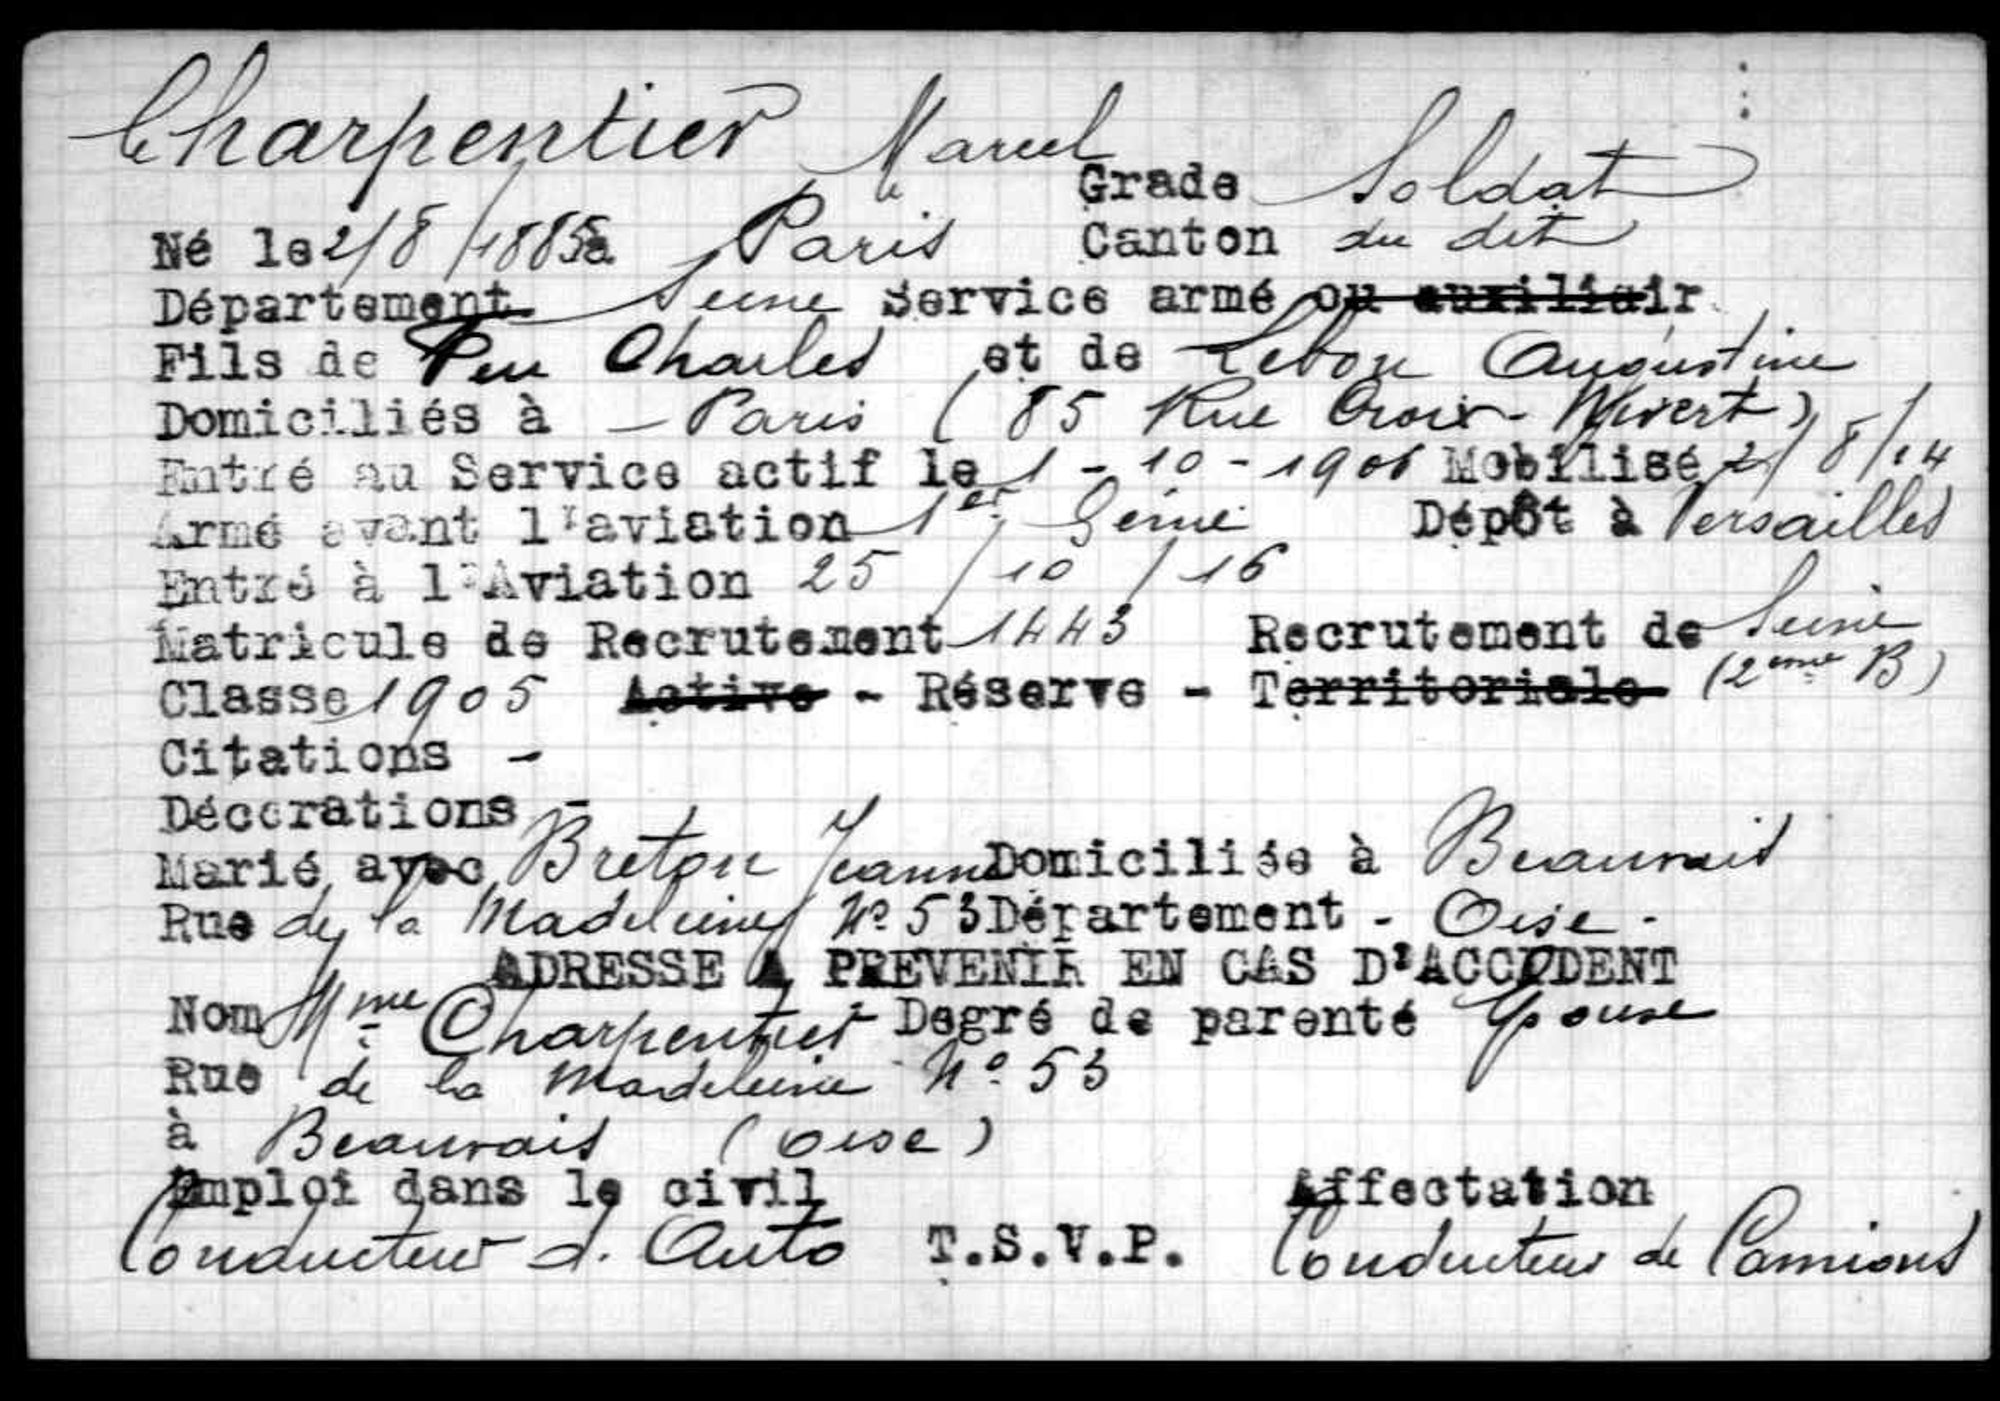 Charpentier Marcel
Grade Soldat
Né le 2/8/1885 à Paris Canton du dit
Département Seine Service armé ou auxiliair
Fils de Feu Charles et de Lebon Augustine
Domiciliés à - Paris (85 Rue Croix-Nivert)
Entré au Service actif le 1-10-1906 Mobilisé 2/8/14
Arme avant l'aviation 1er Génie Dépôt à Versailles
Entré à l'Aviation 25/10/16
Matricule de Recrutement 1443 Recrutement de Seine
Classe 1905 Active - Réserve - Territoriale (2eme B)
Citations -
Décorations -
Marié avec Breton Jeanne Domiciliée à Beauvais
Rue de la Madeleine No 53 Département - Oise -
ADRESSE A PREVENIR EN CAS D'ACCIDENT
Nom Mme Charpentier Degré de parenté Epouse
Rue de la Madeleine No 53
à Beauvais (Oise)
Emploi dans le civil Affectation
Conducteur d. Auto T.S.V.P. Conducteur de Camions